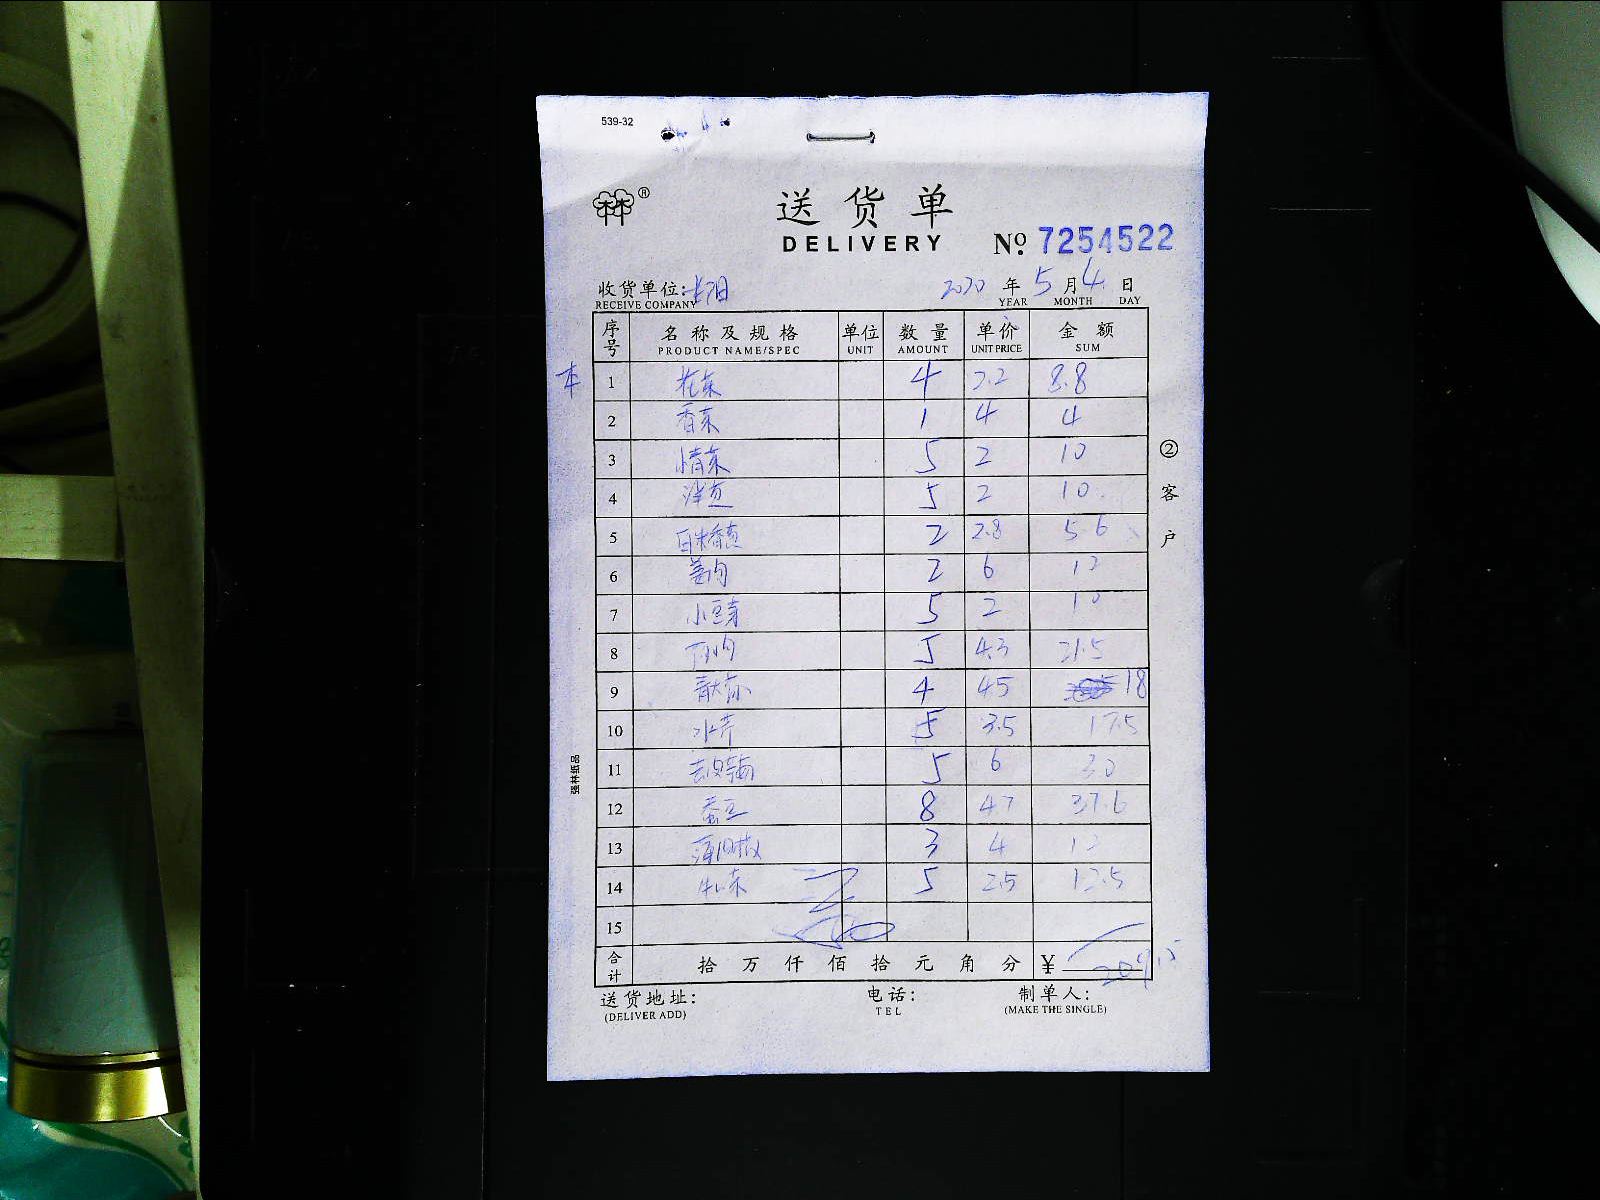 539-32
送货单
DELIVERY
№ 7254522
收货单位:
RECEIVE COMPANY
2020 年 5 月 4 日
YEAR MONTH DAY
序号 名称及规格 单位 数量 单价 金额
PRODUCT NAME/SPEC UNIT AMOUNT UNIT PRICE SUM
本
1 花菜 4 2.2 8.8
2 香菜 1 4 4
3 5 2 10
4 洋芋 5 2 10
5 2 2.8 5.6
6 2 6 12
7 小豆芽 5 2 10
8 5 4.3 21.5
9 4 4.5 18
10 水芹 5 3.5 17.5
11 5 6 30
12 蚕豆 8 4.7 37.6
13 3 4 12
14 5 2.5 12.5
15
合计 拾 万 仟 佰 拾 元 角 分 ¥ 209.5
送货地址: 电话: 制单人:
(DELIVER ADD) TEL (MAKE THE SINGLE)
②客户
强林纸品